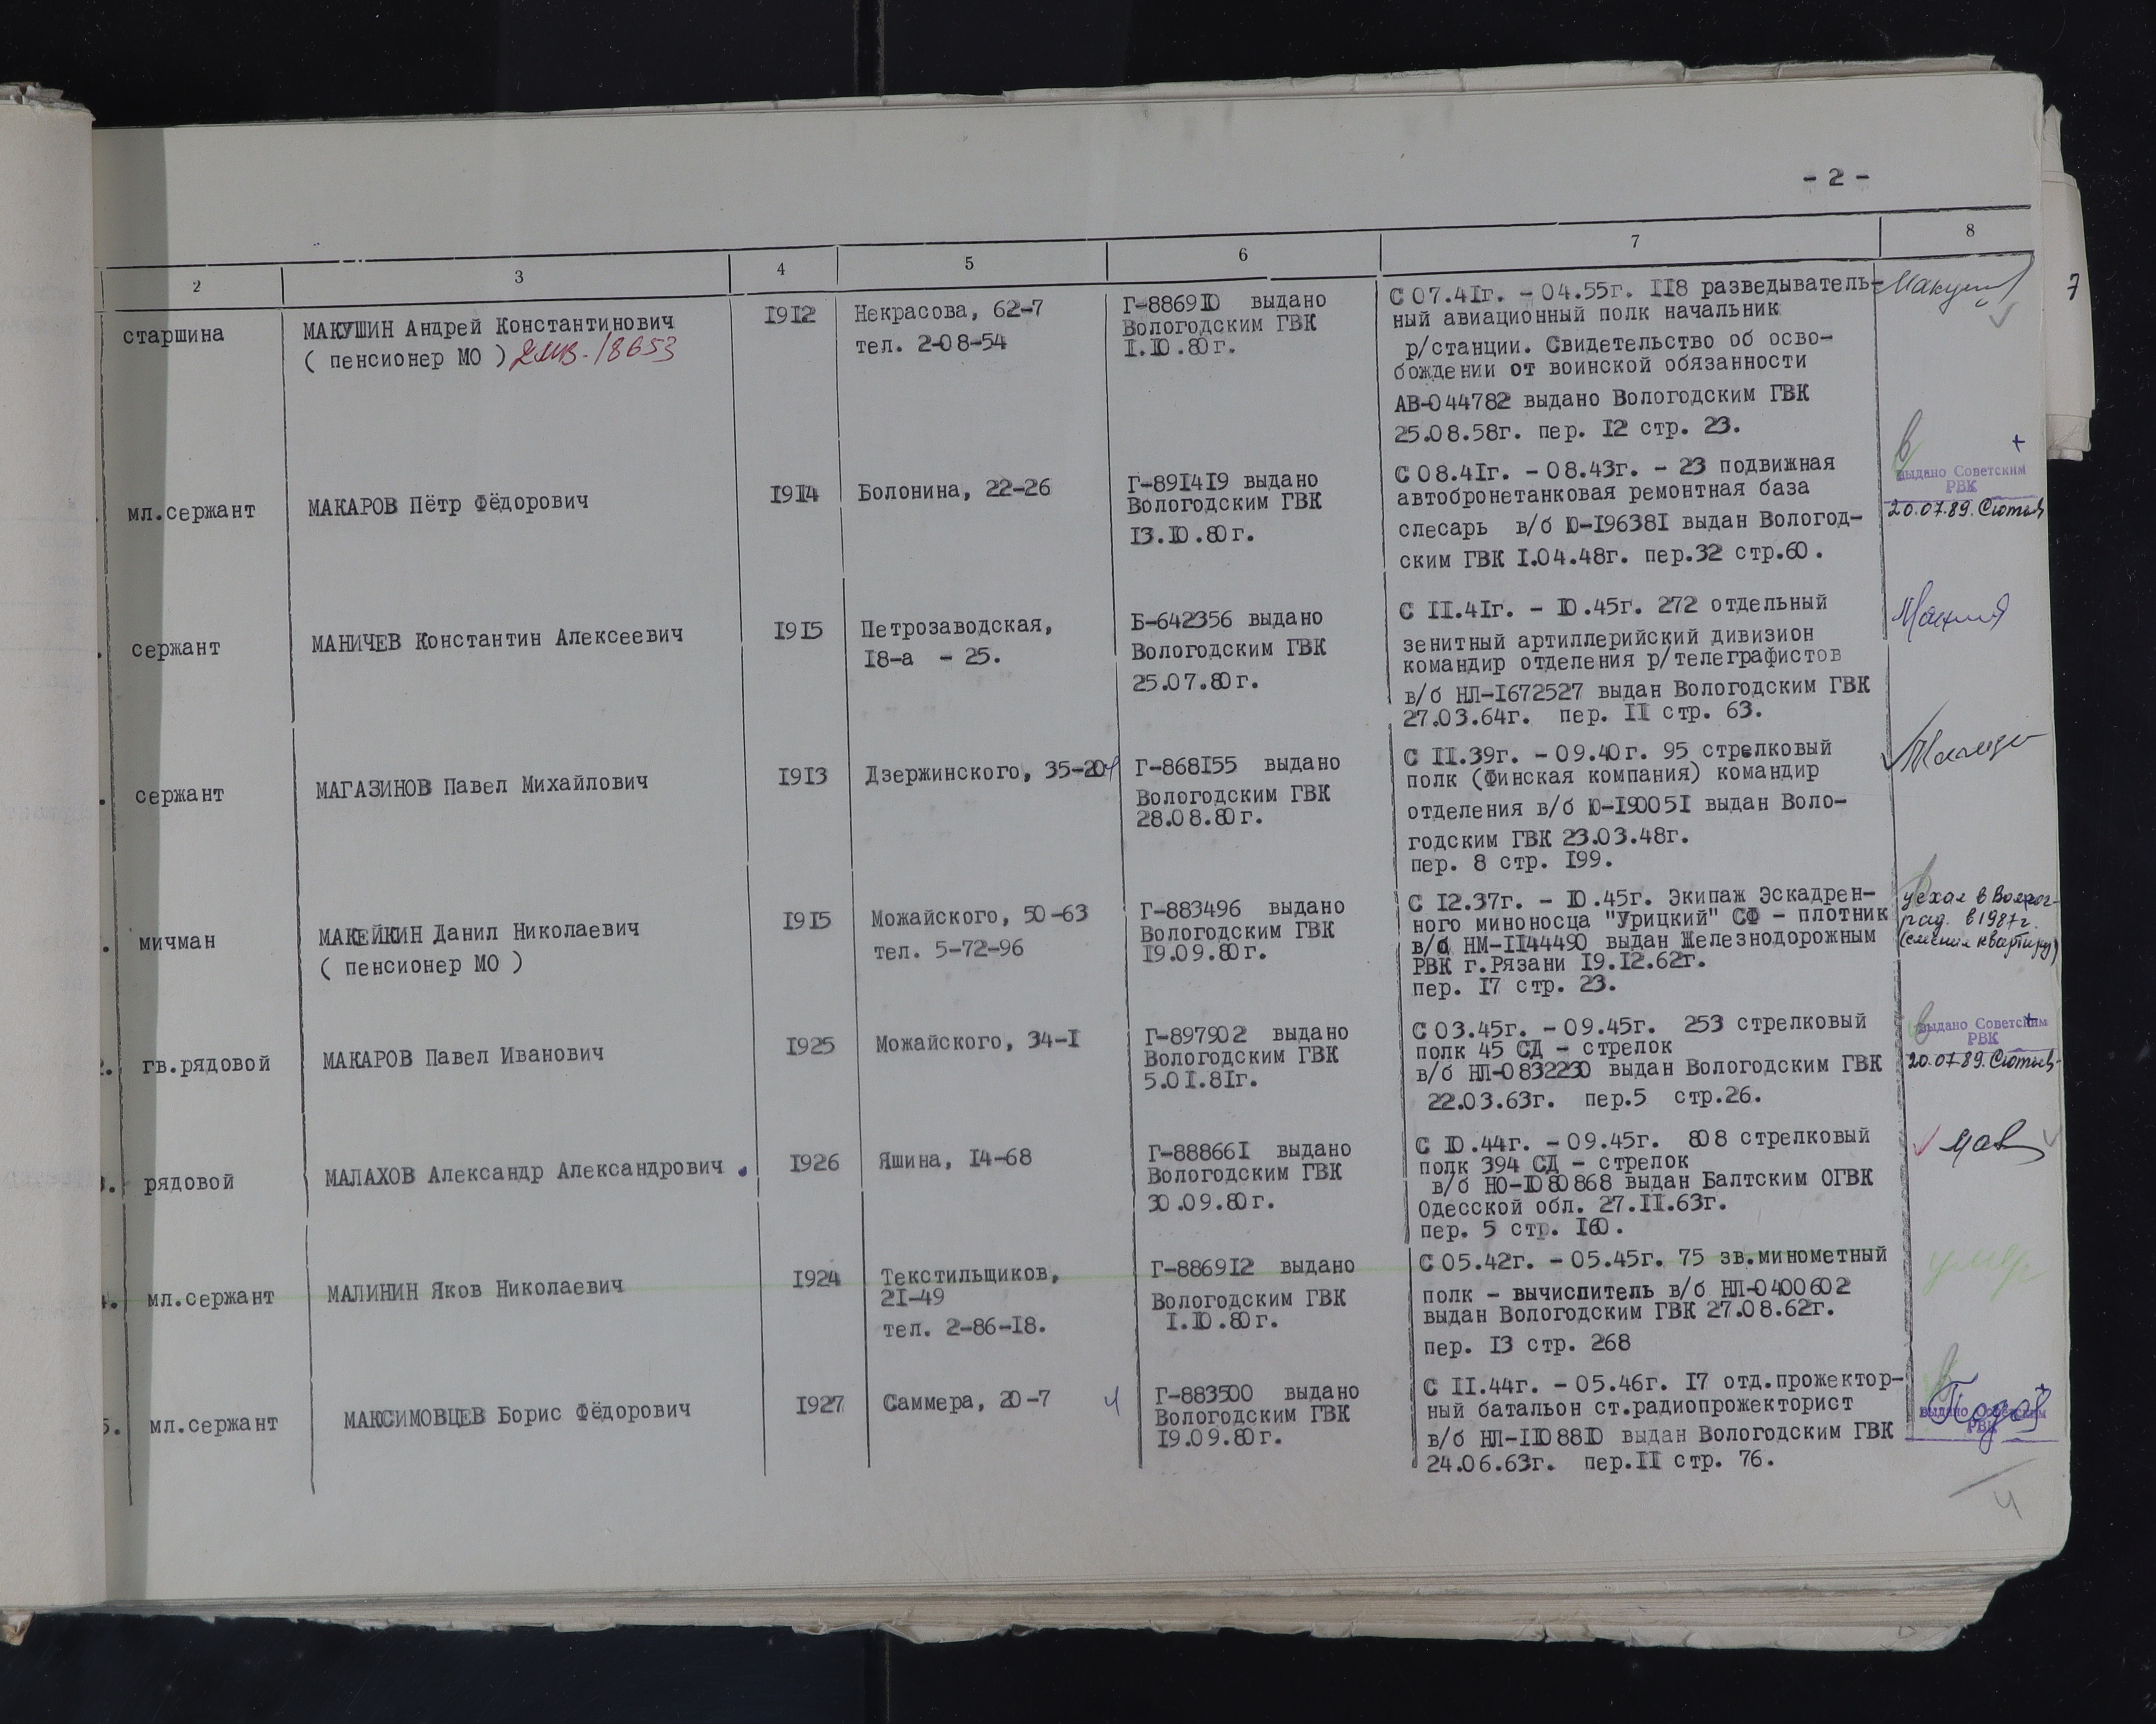 - 2 -
2 3 4 5 6 7 8
7
старшина
МАКУШИН Андрей Константинович
( пенсионер МО )
I9I2
Некрасова, 62-7
тел. 2-08-54
Г-8869I0 выдано
Вологодским ГВК
I.I0.80г.
С 07.4Iг. - 04.55г. II8 разведыватель-
ный авиационный полк начальник
р/станции. Свидетельство об осво-
бождении от воинской обязанности
АВ-044782 выдано Вологодским ГВК
25.08.58г. пер. I2 стр. 23.
Макушин
мл.сержант
МАКАРОВ Пётр Фёдорович
I9I4
Болонина, 22-26
Г-89I4I9 выдано
Вологодским ГВК
I3.I0.80г.
С 08.4Iг. - 08.43г. - 23 подвижная
автобронетанковая ремонтная база
слесарь в/б Ю-I9638I выдан Вологод-
ским ГВК I.04.48г. пер.32 стр.60.
+
выдано Советским
РВК
20.07.89.
сержант
МАНИЧЕВ Константин Алексеевич
I9I5
Петрозаводская,
I8-а - 25.
Б-642356 выдано
Вологодским ГВК
25.07.80г.
С II.4Iг. - I0.45г. 272 отдельный
зенитный артиллерийский дивизион
командир отделения р/телеграфистов
в/б НЛ-I672527 выдан Вологодским ГВК
27.03.64г. пер. II стр. 63.
сержант
МАГАЗИНОВ Павел Михайлович
I9I3
Дзержинского, 35-20
Г-868I55 выдано
Вологодским ГВК
28.08.80г.
С II.39г. - 09.40г. 95 стрелковый
полк (Финская компания) командир
отделения в/б Ю-I9005I выдан Воло-
годским ГВК 23.03.48г.
пер. 8 стр. I99.
мичман
МАКЕЙКИН Данил Николаевич
( пенсионер МО )
I9I5
Можайского, 50-63
тел. 5-72-96
Г-883496 выдано
Вологодским ГВК
I9.09.80г.
С I2.37г. - I0.45г. Экипаж Эскадрен-
ного миноносца "Урицкий" СФ - плотник
в/б НМ-II44490 выдан Железнодорожным
РВК г.Рязани I9.I2.62г.
пер. I7 стр. 23.
уехал в Волгог-
рад. в 1987г.
(сменил квартиру)
гв.рядовой
МАКАРОВ Павел Иванович
I925
Можайского, 34-I
Г-897902 выдано
Вологодским ГВК
5.0I.8Iг.
С 03.45г. - 09.45г. 253 стрелковый
полк 45 СД - стрелок
в/б НЛ-0832230 выдан Вологодским ГВК
22.03.63г. пер.5 стр.26.
+
выдано Советским
РВК
20.07.89.
рядовой
МАЛАХОВ Александр Александрович
I926
Яшина, I4-68
Г-88866I выдано
Вологодским ГВК
30.09.80г.
С I0.44г. - 09.45г. 808 стрелковый
полк 394 СД - стрелок
в/б НО-I080868 выдан Балтским ОГВК
Одесской обл. 27.II.63г.
пер. 5 стр. I60.
мл.сержант
МАЛИНИН Яков Николаевич
I924
Текстильщиков,
2I-49
тел. 2-86-I8.
Г-8869I2 выдано
Вологодским ГВК
I.I0.80г.
С 05.42г. - 05.45г. 75 зв.минометный
полк - вычислитель в/б НЛ-0400602
выдан Вологодским ГВК 27.08.62г.
пер. I3 стр. 268
умер
5. мл.сержант
МАКСИМОВЦЕВ Борис Фёдорович
I927
Саммера, 20-7
Г-883500 выдано
Вологодским ГВК
I9.09.80г.
С II.44г. - 05.46г. I7 отд.прожектор-
ный батальон ст.радиопрожекторист
в/б НЛ-II088I0 выдан Вологодским ГВК
24.06.63г. пер.II стр. 76.
выдано Советским
РВК